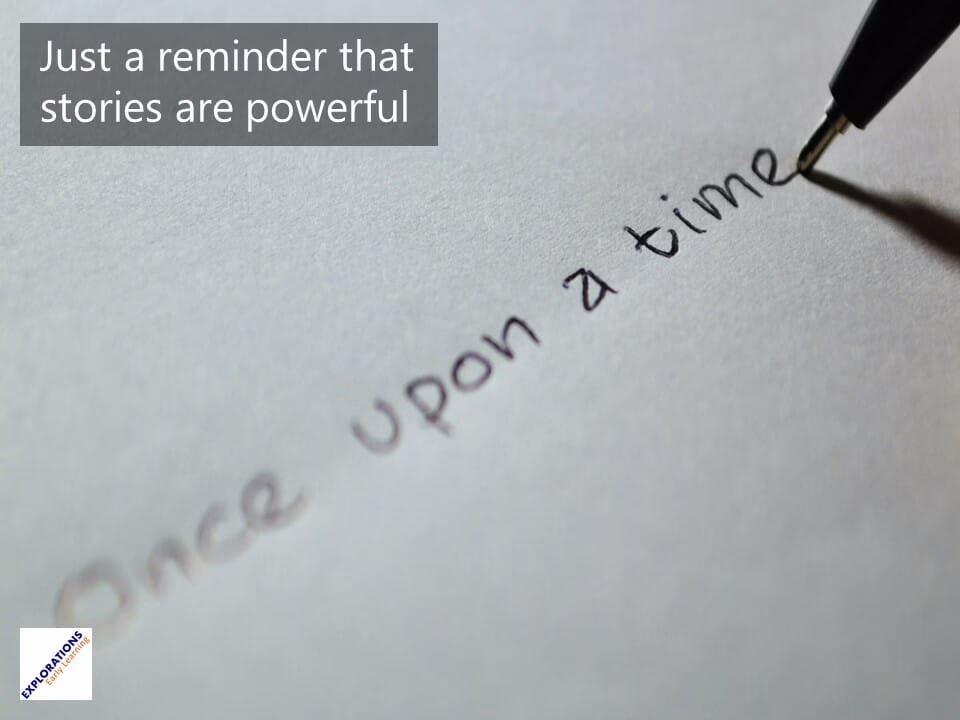 Just a reminder that
stories are powerful
Once upon a time
EXPLORATIONS
Early Learning